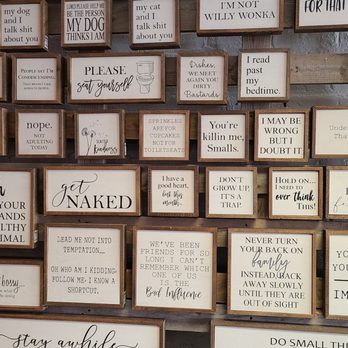 my dog
and I talk
shit about you
LORD PLEASE HELP ME
BE THE PERSON
MY DOG
THINKS I AM
my cat
and I talk
shit about you
I'M NOT
WILLY WONKA
FOR THAT
PEOPLE SAY I'M
CONDESCENDING.
PLEASE
seat yourself
Dishes,
WE MEET
AGAIN YOU
DIRTY
Bastards
I read
past my
bedtime.
nope.
NOT
ADULTING
TODAY
kindness
SPRINKLES
ARE FOR
CUPCAKES
NOT FOR
TOILETSEATS
You're
killin me,
Smalls.
I MAY BE
WRONG
BUT I
DOUBT IT
get
NAKED
I have a
good heart,
but this
mouth
DON'T
GROW UP.
IT'S A
TRAP.
HOLD ON...
I NEED TO
over think
THIS!
YOUR
HANDS
HEALTHY
ANIMAL
LEAD ME NOT INTO
TEMPTATION...
OH WHO AM I KIDDING
FOLLOW ME, I KNOW A
SHORTCUT.
WE'VE BEEN
FRIENDS FOR SO
LONG I CAN'T
REMEMBER WHICH
ONE OF US
IS THE
Bad Influence
NEVER TURN
YOUR BACK ON
family
INSTEAD, BACK
AWAY SLOWLY
UNTIL THEY ARE
OUT OF SIGHT
bossy
stay awhile
DO SMALL THI